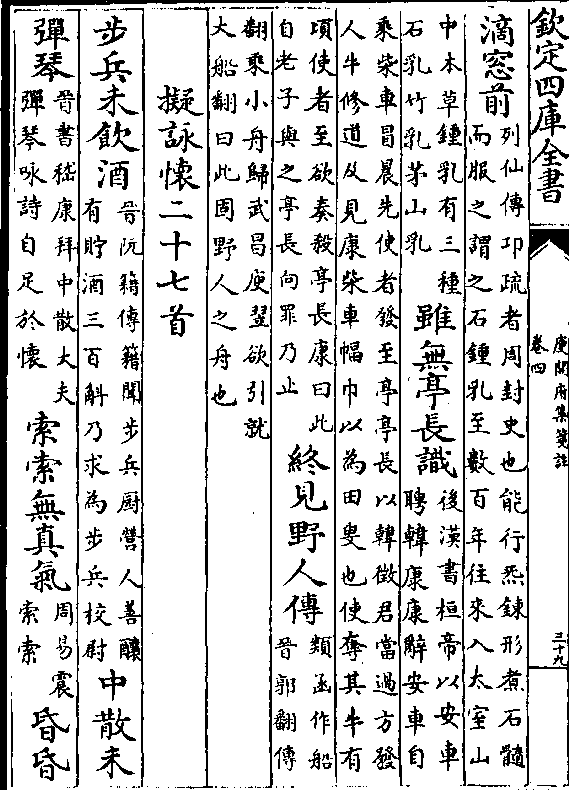 欽定四庫全書
庾開府集箋註
卷四
三十九
滴窓前
列仙傳卭疏者周封史也能行炁鍊形煮石髓
而服之謂之石鍾乳至數百年往來入太室山
中本草鍾乳有三種
石乳竹乳茅山乳
雖無亭長識
後漢書桓帝以安車
聘韓康康辭安車自
乘柴車冒晨先使者發至亭亭長以韓徴君當過方發
人牛修道及見康柴車幅巾以為田叟也使奪其牛有
頃使者至欲奏殺亭長康曰此
自老子與之亭長向罪乃止
終見野人傳
類函作船
晉郭翻傳
翻乘小舟歸武昌庾翌欲引就
大船翻曰此固野人之舟也
擬詠懷二十七首
步兵未飲酒
晉阮籍傳籍聞步兵厨營人善釀
有貯酒三百斛乃求為步兵校尉
中散未
彈琴
晉書嵇康拜中散大夫
彈琴咏詩自足於懷
索索無真氣
周易震
索索
昏昏